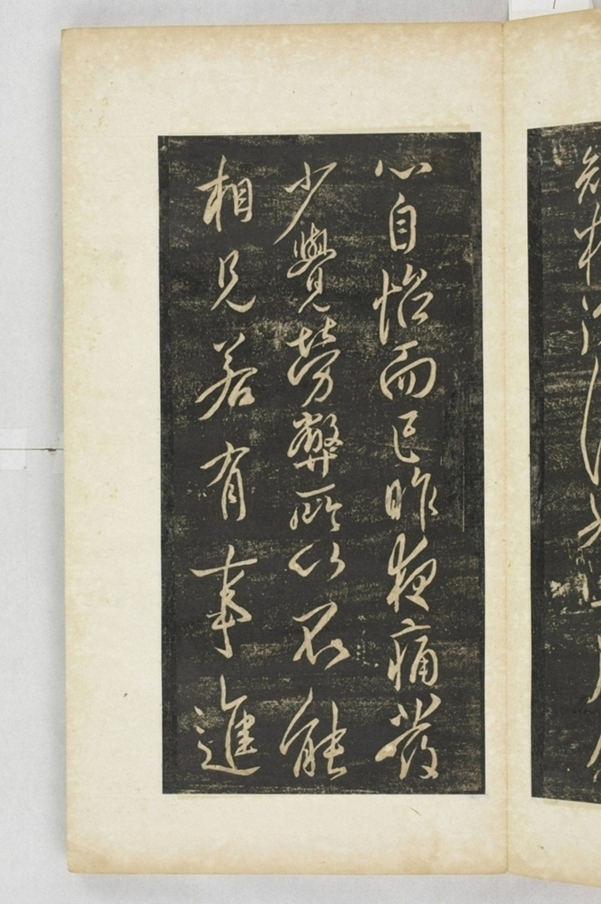 心自怡而已昨夜痛發
少覺勞弊所以不能
相見若有事進